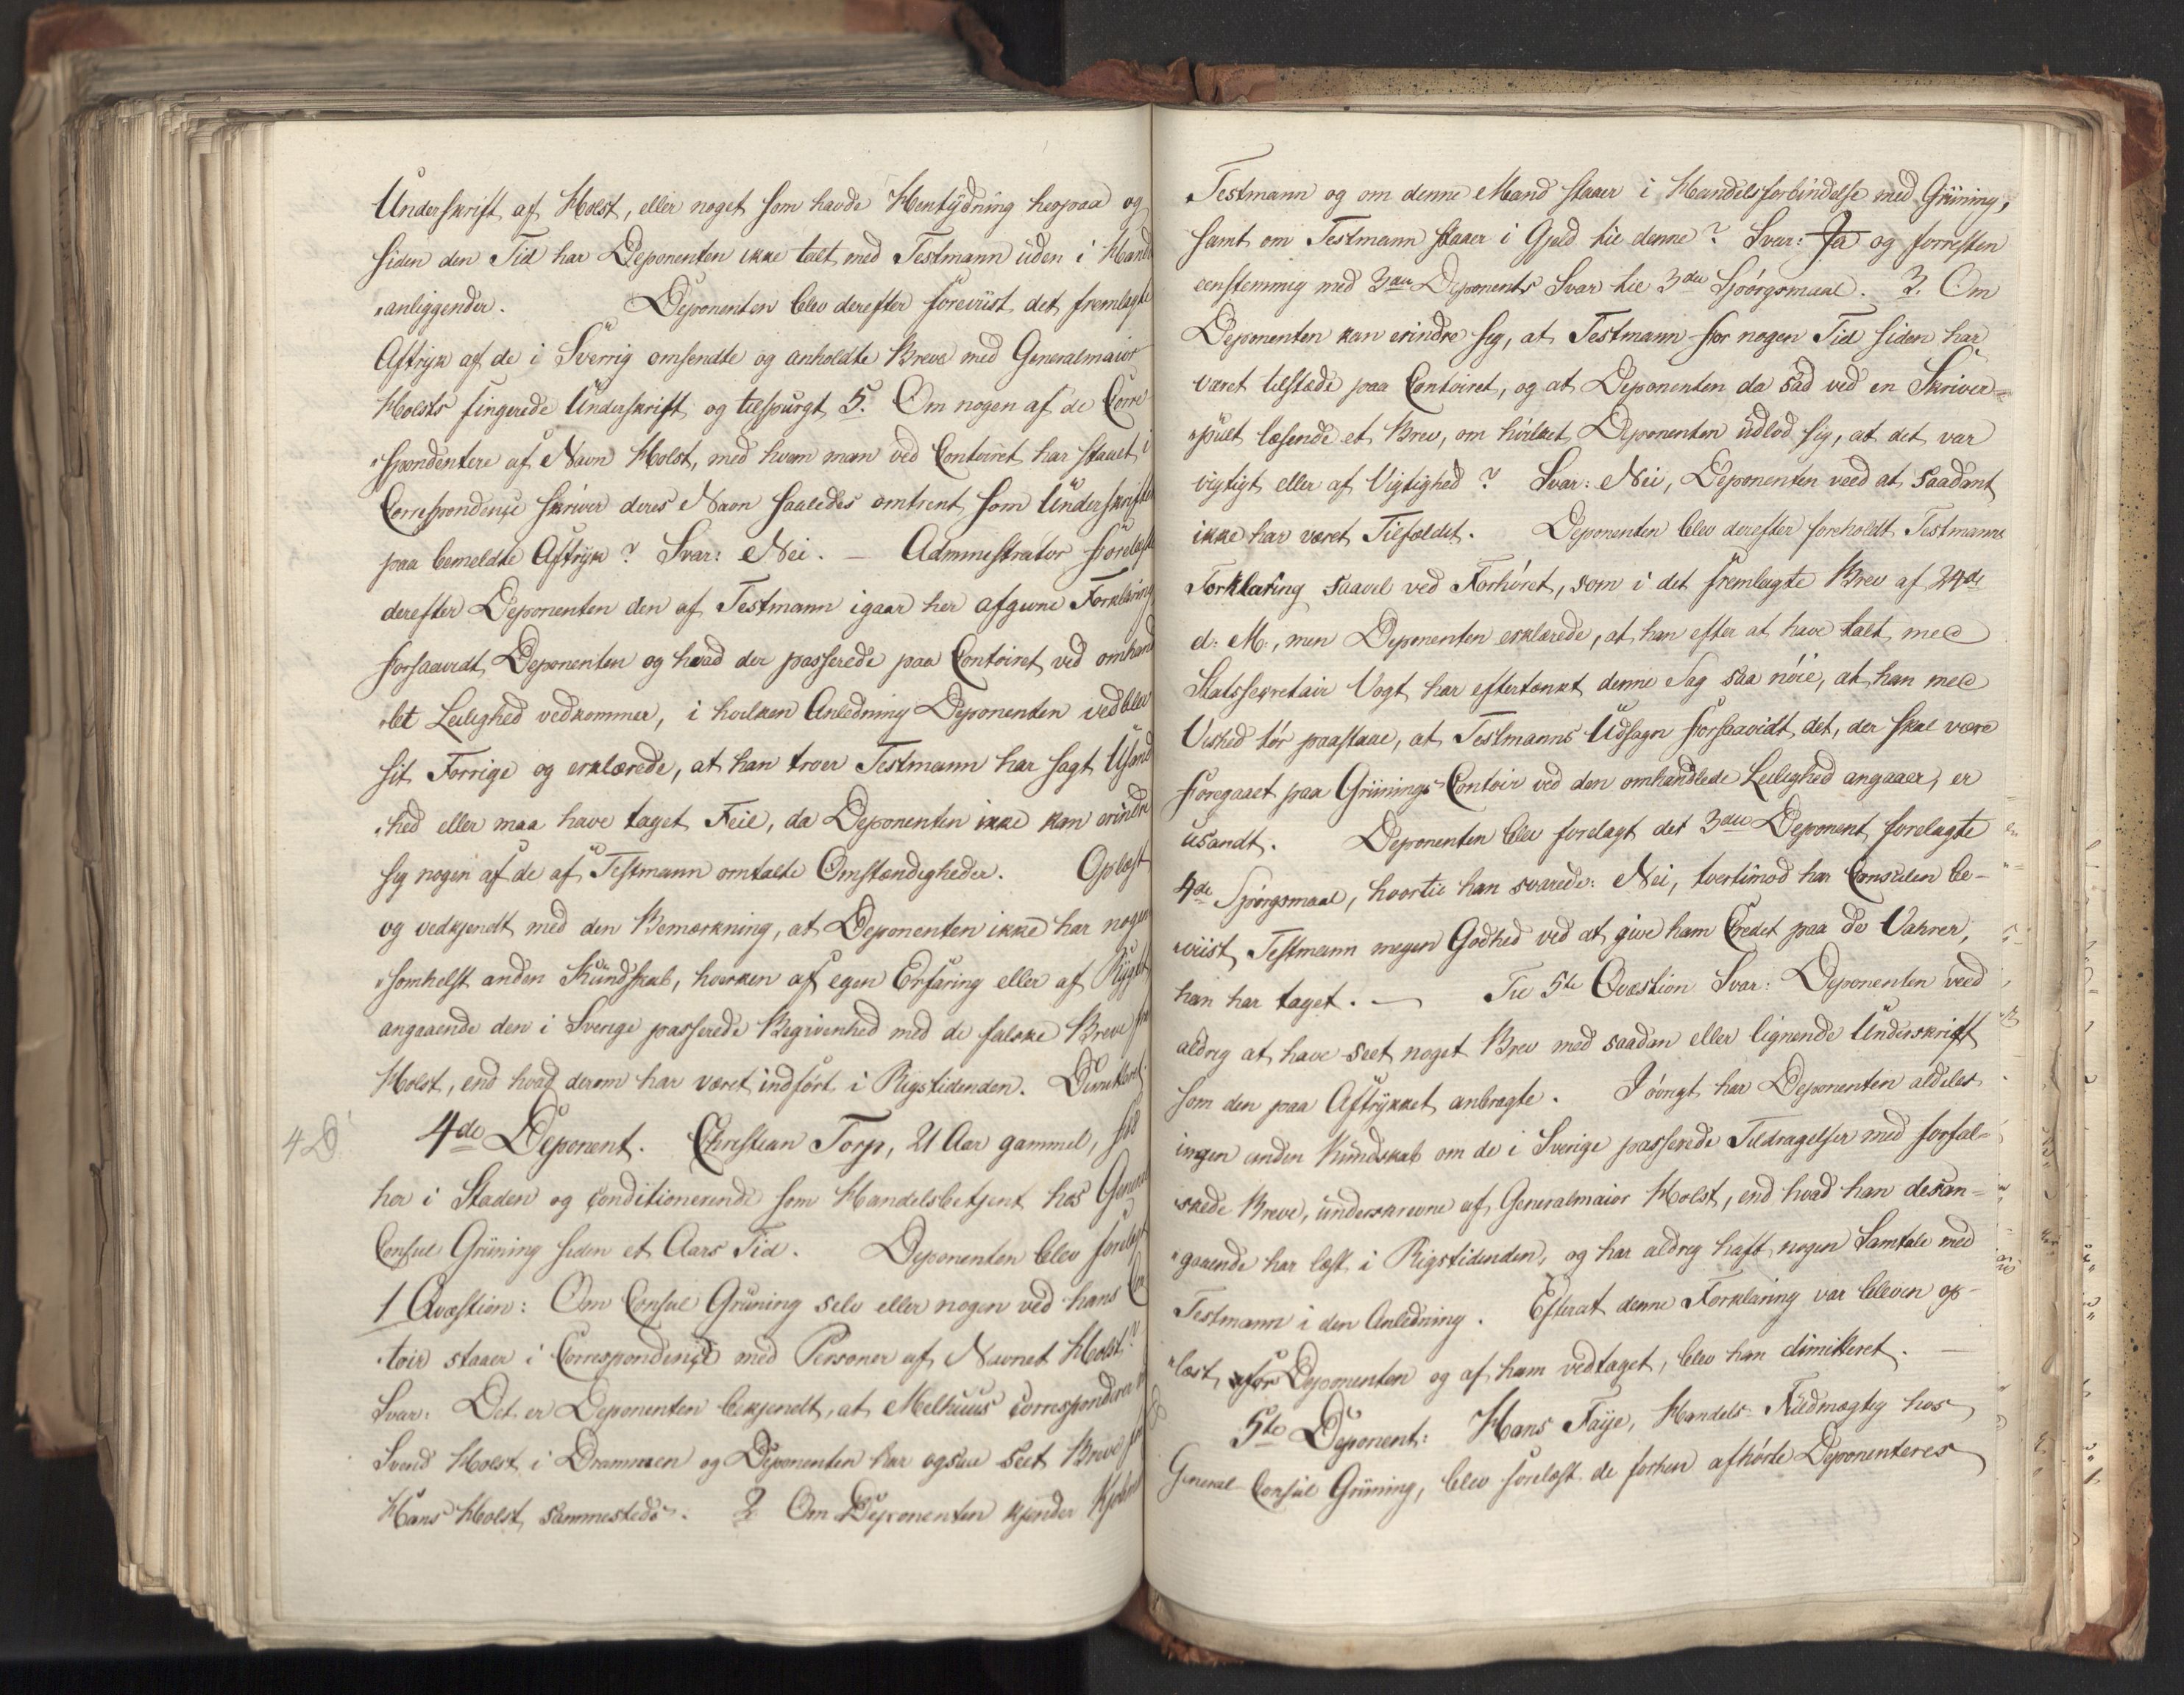 Underskrift af Holst, eller noget som havde Hentydning herpaa og
siden den Tid har Deponenten ikke talt med Testmann uden i Hand
„anliggender. Deponenten blev derefter foreviist det fremlagte
Aftryk af de i Sverrig omsendte og anholdte Breve med Generalmaior
Holsts fingerede Underskrift og tilspurgt 5. Om nogen af de Corre
„spondentere af Navn Holst, med hvem man ved Contoiret har staaet i
Correspondence skriver deres Navn saaledes omtrent som Underskriften
paa bemeldte Aftryk? Svar: Nei. — Administrator forelæste
derefter Deponenten den af Testmann igaar her afgivne Forklaring
forsaavidt Deponenten og hvad der passerede paa Contoiret ved omhand
„let Leilighed vedkommer, i hvilken Anledning Deponenten vedblev
sit Forrige og erklærede, at han troer Testmann har sagt Usand
„hed eller maa have taget Feil, da Deponenten ikke kan erindre
sig nogen af de af Testmann omtalte Omstændigheder. Oplæst
og vedkjendt med den Bemærkning, at Deponenten ikke har nogen
„somhelst anden Kundskab, hverken af egen Erfaring eller af Rygtet
angaaende den i Sverige passerede Begivenhed med de falske Breve fra
Holst, end hvad derom har været indført i Rigstidenden. Dimitteret.
4 D. 4de Deponent. Christian Torp, 21 Aar gammel, født
her i Staden og conditionerende som Handelsbetjent hos General
Consul Grüning siden et Aars Tid. Deponenten blev forelagt
1 Qvæstion: Om Consul Grüning selv eller nogen ved hans Con
„toir staaer i Correspondence med Personer af Navnet Holst?
Svar: Det er Deponenten bekjendt, at Melhuus corresponderer m
Svend Holst i Drammen og Deponenten har ogsaa seet Breve fra
Hans Holst sammesteds. 2 Om Deponenten kjender
Testmann og om denne Mand staaer i Handelsforbindelse med Grüning,
samt om Testmann staaer i Gjæld til denne? Svar: Ja og forresten
eenstemmig med 3die Deponents Svar til 3die Spørgsmaal. 3. Om
Deponenten kan erindre sig, at Testmann for nogen Tid siden har
været tilstæde paa Contoiret, og at Deponenten da sad ved en Skriver=
„pult læsende et Brev, om hvilket Deponenten udlod sig, at det var
vigtigt eller af Vigtighed? Svar: Nei, Deponenten veed at saadant
ikke har været Tilfældet. Deponenten blev derefter foreholdt Testmanns
Forklaring saavel ved Forhøret, som i det fremlagte Brev af 24de
d: M:, men Deponenten erklærede, at han efter at have talt med
Statssecretair Vogt har eftertænkt denne Sag saa nøie, at han med
Vished tør paastaae, at Testmanns Udsagn forsaavidt det, der skal være
foregaaet paa Grünings Contoir ved den omhandlede Leilighed angaaer, er
usandt. Deponenten blev forelagt det 3die Deponent forelagte
4de Spørgsmaal, hvortil han svarede: Nei, tvertimod har Consulen be-
„viist Testmann megen Godhed ved at give ham Credit paa de Vahrer,
han har taget. — Til 5te Qvæstion Svar: Deponenten veed
aldrig at have seet noget Brev med saadan eller lignende Underskrift
som den paa Aftrykket anbragte. I øvrigt har Deponenten aldeles
ingen anden Kundskab om de i Sverige passerede Tildragelser med forfal=
„skede Breve, underskrevne af Generalmaior Holst, end hvad han desan=
„gaaende har læst i Rigstidenden, og har aldrig haft nogen Samtale med
Testmann i den Anledning. Efterat denne Forklaring var bleven op-
„læst for Deponenten og af ham vedtaget, blev han dimitteret. —
5te Deponent: Hans Faye, Handels-Fuldmægtig hos
General-Consul Grüning, blev forelæst de forhen afhørte Deponenteres